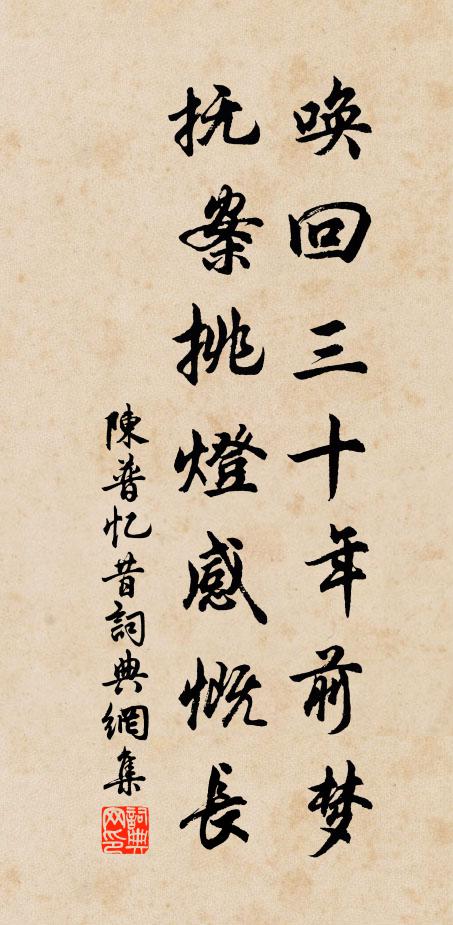 唤回三十年前梦
抚案挑燈感慨長
陳普忆昔詞典網集
詞典网印